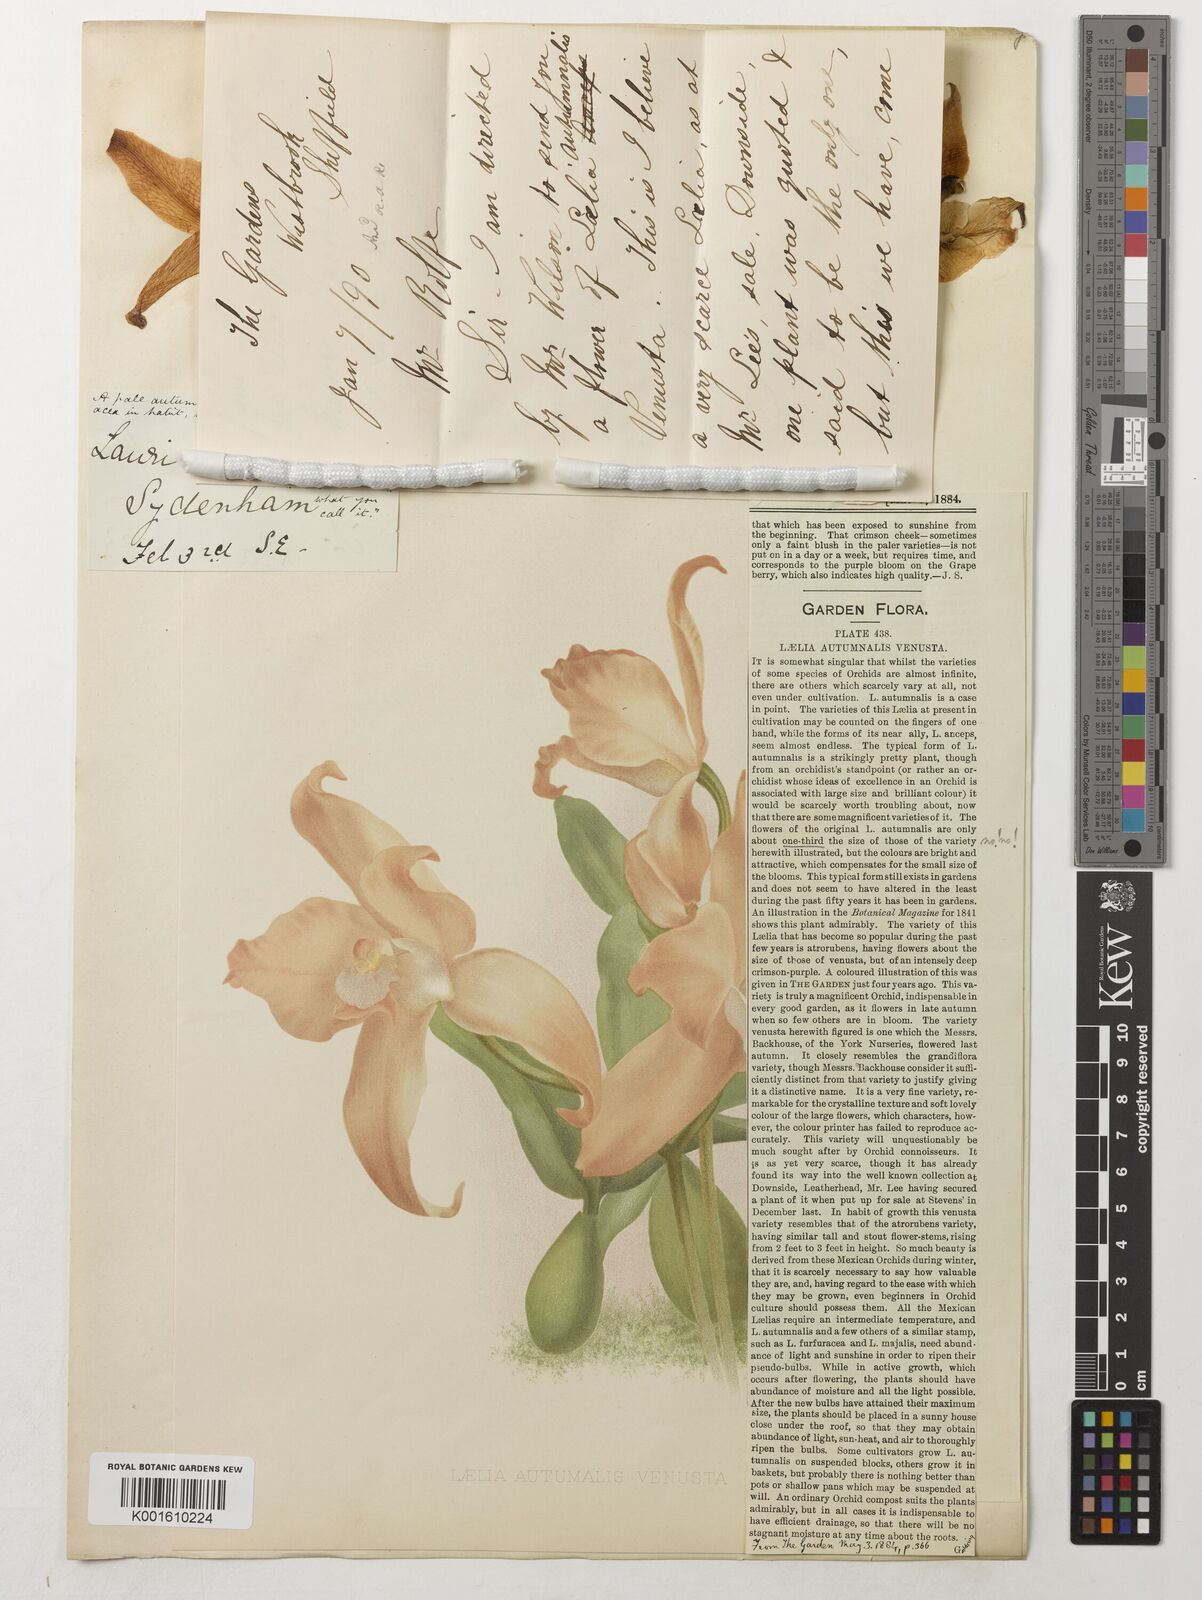 The Gardens
Westbrook
Sheffield
Jan 7/90
Mr Rolfe
Sir - I am directed
by Mr Wilson to send you
a flower of Lælia autumnalis
Venusta. This is I believe
a very scarce Lælia, as at
Mr Lee's, sale, Downside,
one plant was quoted &
said to be the only one,
but this we have, come
A pale autum
acea in habit,
Lawri
Sydenham what you
call it."
Feb 3rd S.E.-
1884.
that which has been exposed to sunshine from
the beginning. That crimson cheek—sometimes
only a faint blush in the paler varieties—is not
put on in a day or a week, but requires time, and
corresponds to the purple bloom on the Grape
berry, which also indicates high quality.—J. S.
GARDEN FLORA.
PLATE 438.
LÆLIA AUTUMNALIS VENUSTA.
IT is somewhat singular that whilst the varieties
of some species of Orchids are almost infinite,
there are others which scarcely vary at all, not
even under cultivation. L. autumnalis is a case
in point. The varieties of this Lælia at present in
cultivation may be counted on the fingers of one
hand, while the forms of its near ally, L. anceps,
seem almost endless. The typical form of L.
autumnalis is a strikingly pretty plant, though
from an orchidist's standpoint (or rather an or-
chidist whose ideas of excellence in an Orchid is
associated with large size and brilliant colour) it
would be scarcely worth troubling about, now
that there are some magnificent varieties of it. The
flowers of the original L. autumnalis are only
about one-third the size of those of the variety no! no!
herewith illustrated, but the colours are bright and
attractive, which compensates for the small size of
the blooms. This typical form still exists in gardens
and does not seem to have altered in the least
during the past fifty years it has been in gardens.
An illustration in the Botanical Magazine for 1841
shows this plant admirably. The variety of this
Lælia that has become so popular during the past
few years is atrorubens, having flowers about the
size of those of venusta, but of an intensely deep
crimson-purple. A coloured illustration of this was
given in THE GARDEN just four years ago. This va-
riety is truly a magnificent Orchid, indispensable in
every good garden, as it flowers in late autumn
when so few others are in bloom. The variety
venusta herewith figured is one which the Messrs.
Backhouse, of the York Nurseries, flowered last
autumn. It closely resembles the grandiflora
variety, though Messrs. Backhouse consider it suffi-
ciently distinct from that variety to justify giving
it a distinctive name. It is a very fine variety, re-
markable for the crystalline texture and soft lovely
colour of the large flowers, which characters, how-
ever, the colour printer has failed to reproduce ac-
curately. This variety will unquestionably be
much sought after by Orchid connoisseurs. It
is as yet very scarce, though it has already
found its way into the well known collection at
Downside, Leatherhead, Mr. Lee having secured
a plant of it when put up for sale at Stevens' in
December last. In habit of growth this venusta
variety resembles that of the atrorubens variety,
having similar tall and stout flower-stems, rising
from 2 feet to 3 feet in height. So much beauty is
derived from these Mexican Orchids during winter,
that it is scarcely necessary to say how valuable
they are, and, having regard to the ease with which
they may be grown, even beginners in Orchid
culture should possess them. All the Mexican
Lælias require an intermediate temperature, and
L. autumnalis and a few others of a similar stamp,
such as L. furfuracea and L. majalis, need abund-
ance of light and sunshine in order to ripen their
pseudo-bulbs. While in active growth, which
occurs after flowering, the plants should have
abundance of moisture and all the light possible.
After the new bulbs have attained their maximum
size, the plants should be placed in a sunny house
close under the roof, so that they may obtain
abundance of light, sun-heat, and air to thoroughly
ripen the bulbs. Some cultivators grow L. au-
tumnalis on suspended blocks, others grow it in
baskets, but probably there is nothing better than
pots or shallow pans which may be suspended at
will. An ordinary Orchid compost suits the plants
admirably, but in all cases it is indispensable to
have efficient drainage, so that there will be no
stagnant moisture at any time about the roots.
From The Garden May. 3. 1884, p. 366
LÆLIA AUTUMALIS VENUSTA
ROYAL BOTANIC GARDENS KEW
K001610224
Golden Thread
Colors by Munsell Color Services Lab
Don Williams
Royal Botanic Gardens
Kew
copyright reserved
0 1 2 3 4 5 6 7 8 9 10
cm